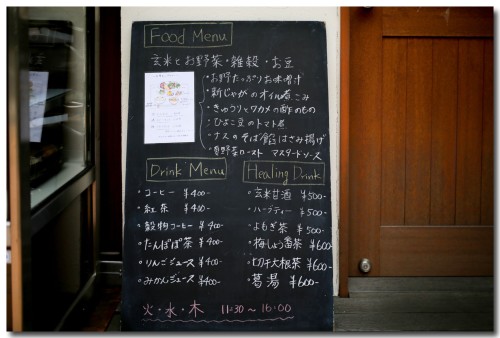 Food Menu
玄米とお野菜・雑穀・お豆
・お野菜たっぷりお味噌汁
・新じゃがのオイル煮こみ
・きゅうりとワカメの酢のもの
・ひよこ豆のトマト煮
・ナスのそば餡はさみ揚げ
・夏野菜ロースト マスタードソース
Drink Menu
・コーヒー ¥400-
・紅茶 ¥400-
・穀物コーヒー ¥400-
・たんぽぽ茶 ¥400-
・りんごジュース ¥400-
・みかんジュース ¥400-
Healing Drink
・玄米甘酒 ¥500-
・ハーブティー ¥500-
・よもぎ茶 ¥500-
・梅しょう番茶 ¥600-
・切干大根茶 ¥600-
・葛湯 ¥600-
火・水・木 11:30〜16:00